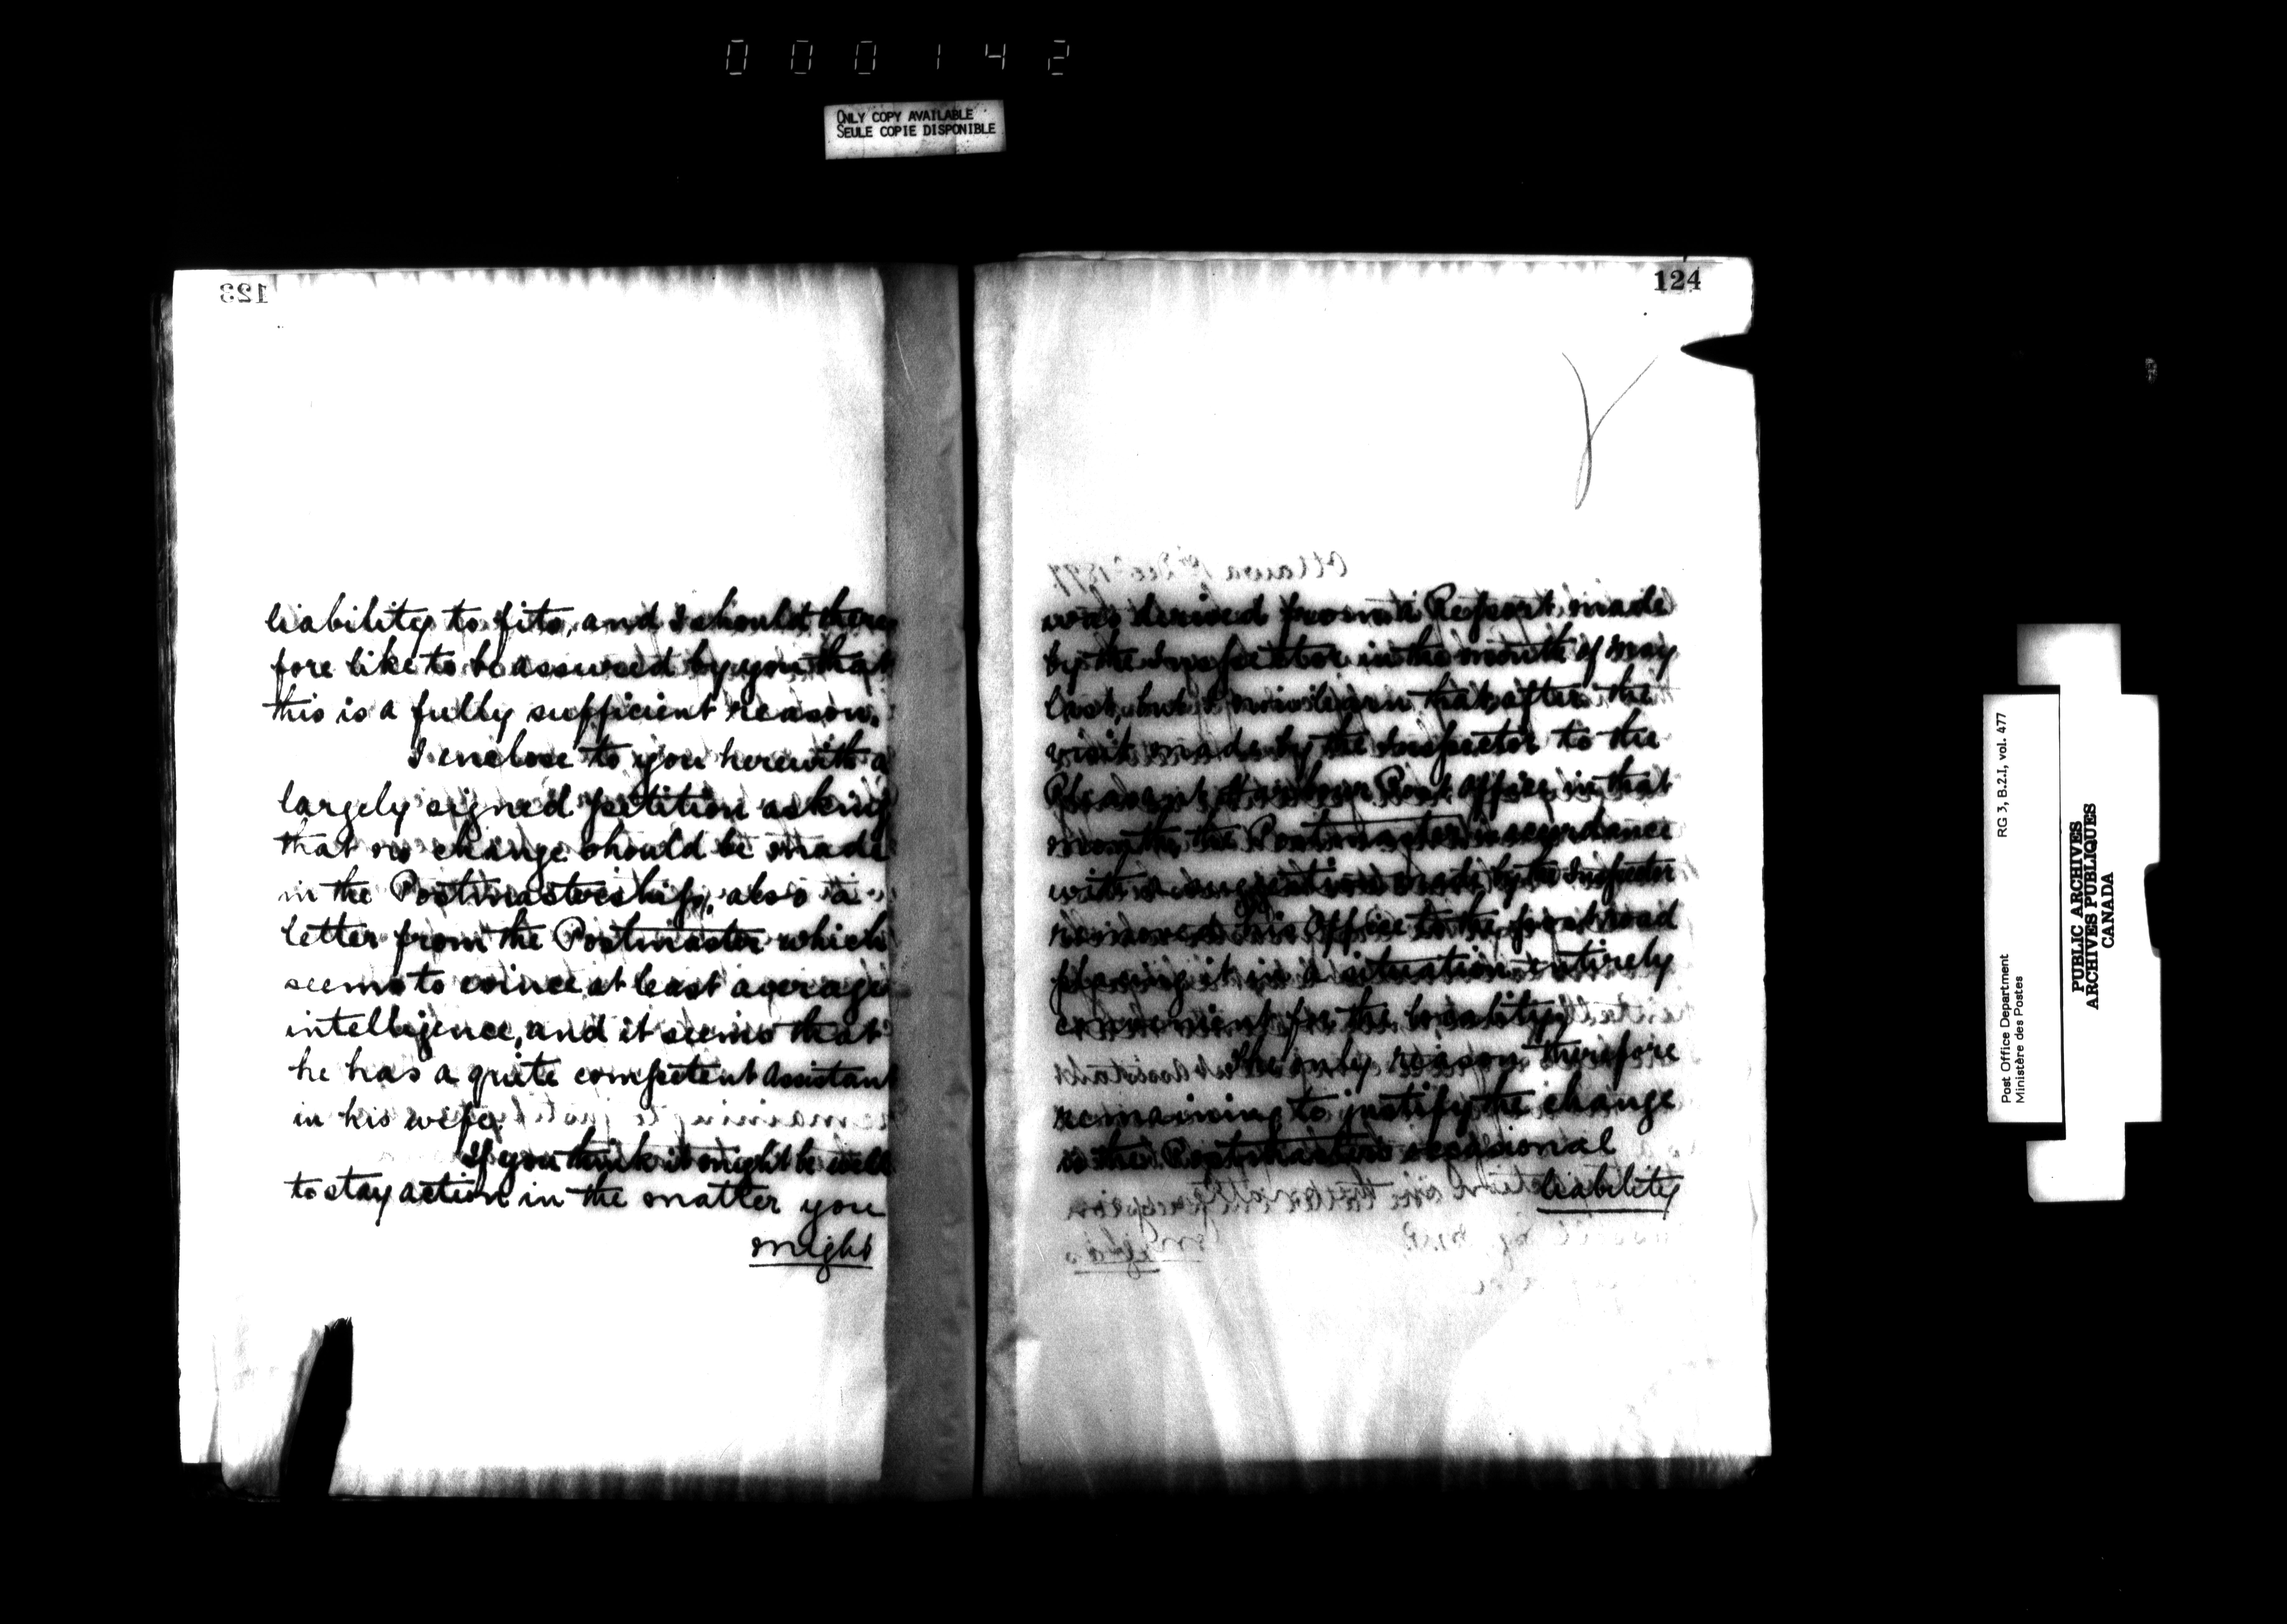 000142
ONLY COPY AVAILABLE
SEULE COPIE DISPONIBLE
123
liability to fits, and I should there
fore like to be assured by you that
this is a fully sufficient reason.
I enclose to you herewith a
largely signed petition asking
that no change should be made
in the Postmastership, also a
letter from the Postmaster which
seems to evince at least average
intelligence, and it seems that
he has a quite competent assistant
in his wife.
If you think it might be well
to stay action in the matter you
might
124
Ottawa Dec 1877
was derived from a Report made
by the Inspector in the month of May
last, but I now learn that after the
visit made by the Inspector to the
Pleasant Harbour Post Office in that
month, the Postmaster in accordance
with a suggestion made by the Inspector
removed his Office to the front road
placing it in a situation entirely
convenient for the locality.
The only reason therefore
remaining to justify the change
is the Postmaster's occasional
liability
Post Office Department
Ministère des Postes
RG 3, B.2.I, vol. 477
PUBLIC ARCHIVES
ARCHIVES PUBLIQUES
CANADA